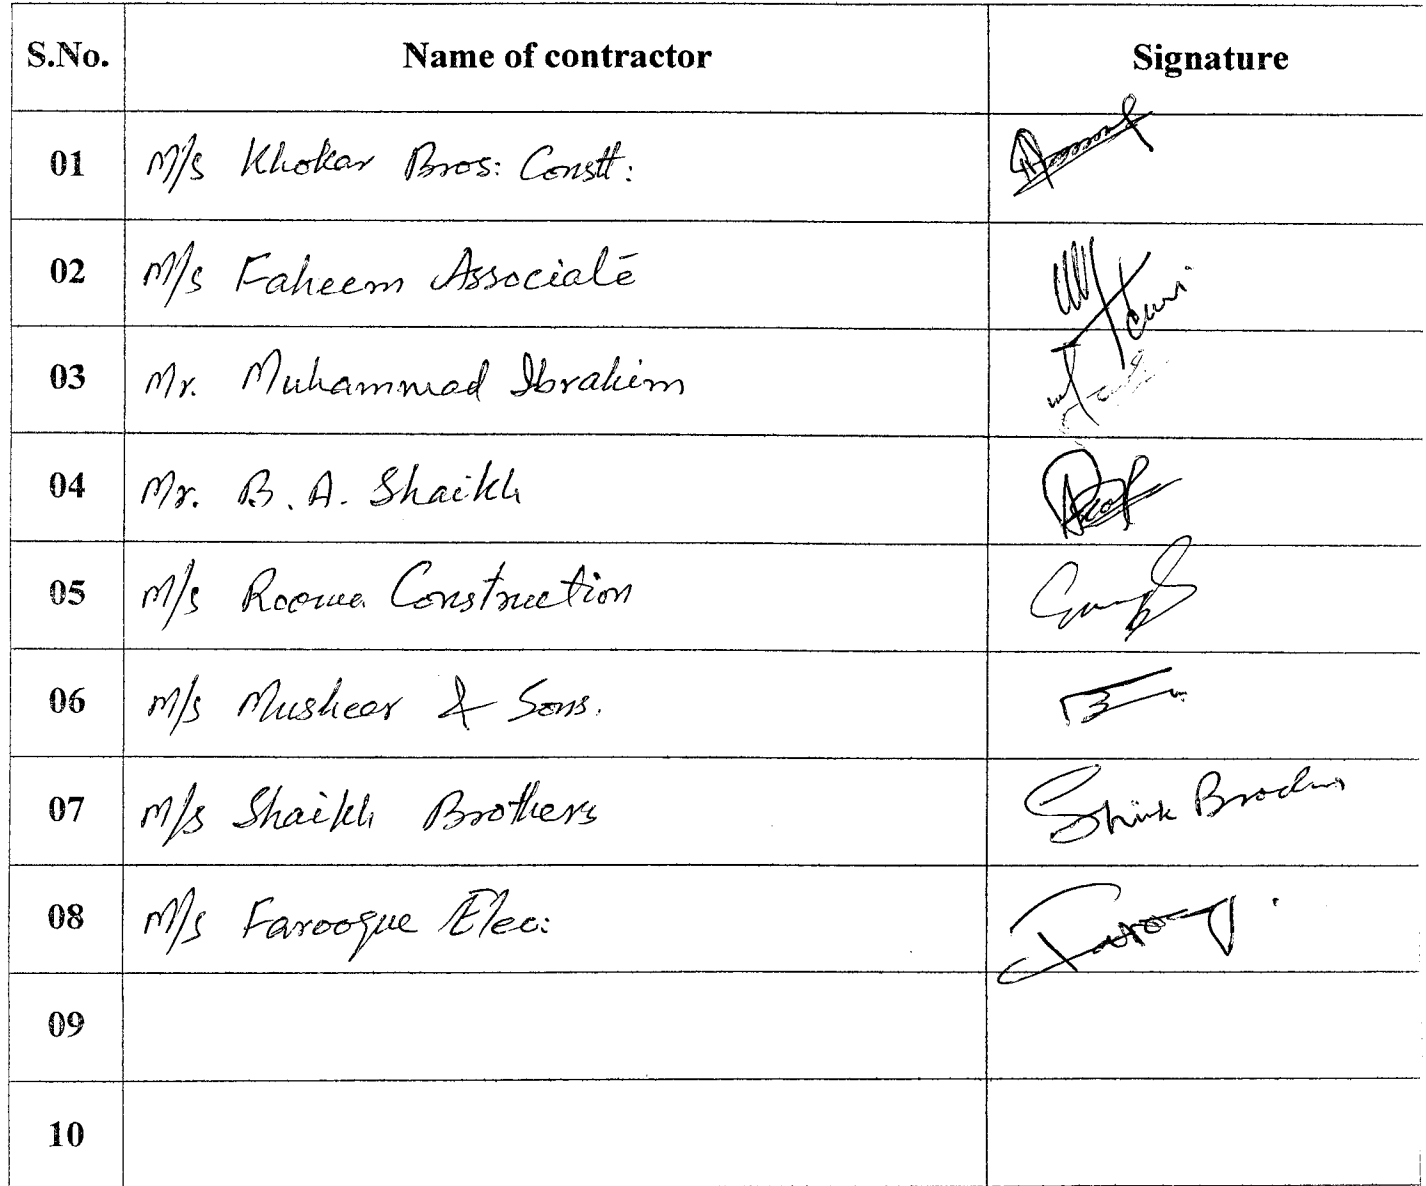 S.No. Name of contractor Signature
01 M/s Khokar Bros: Constt:
02 M/s Faheem Associate
03 Mr. Muhammad Ibrahim
04 Mr. B. A. Shaikh
05 M/s Construction
06 M/s Musheer & Sons.
07 M/s Shaikh Brothers
08 M/s Farooque Elec:
09
10